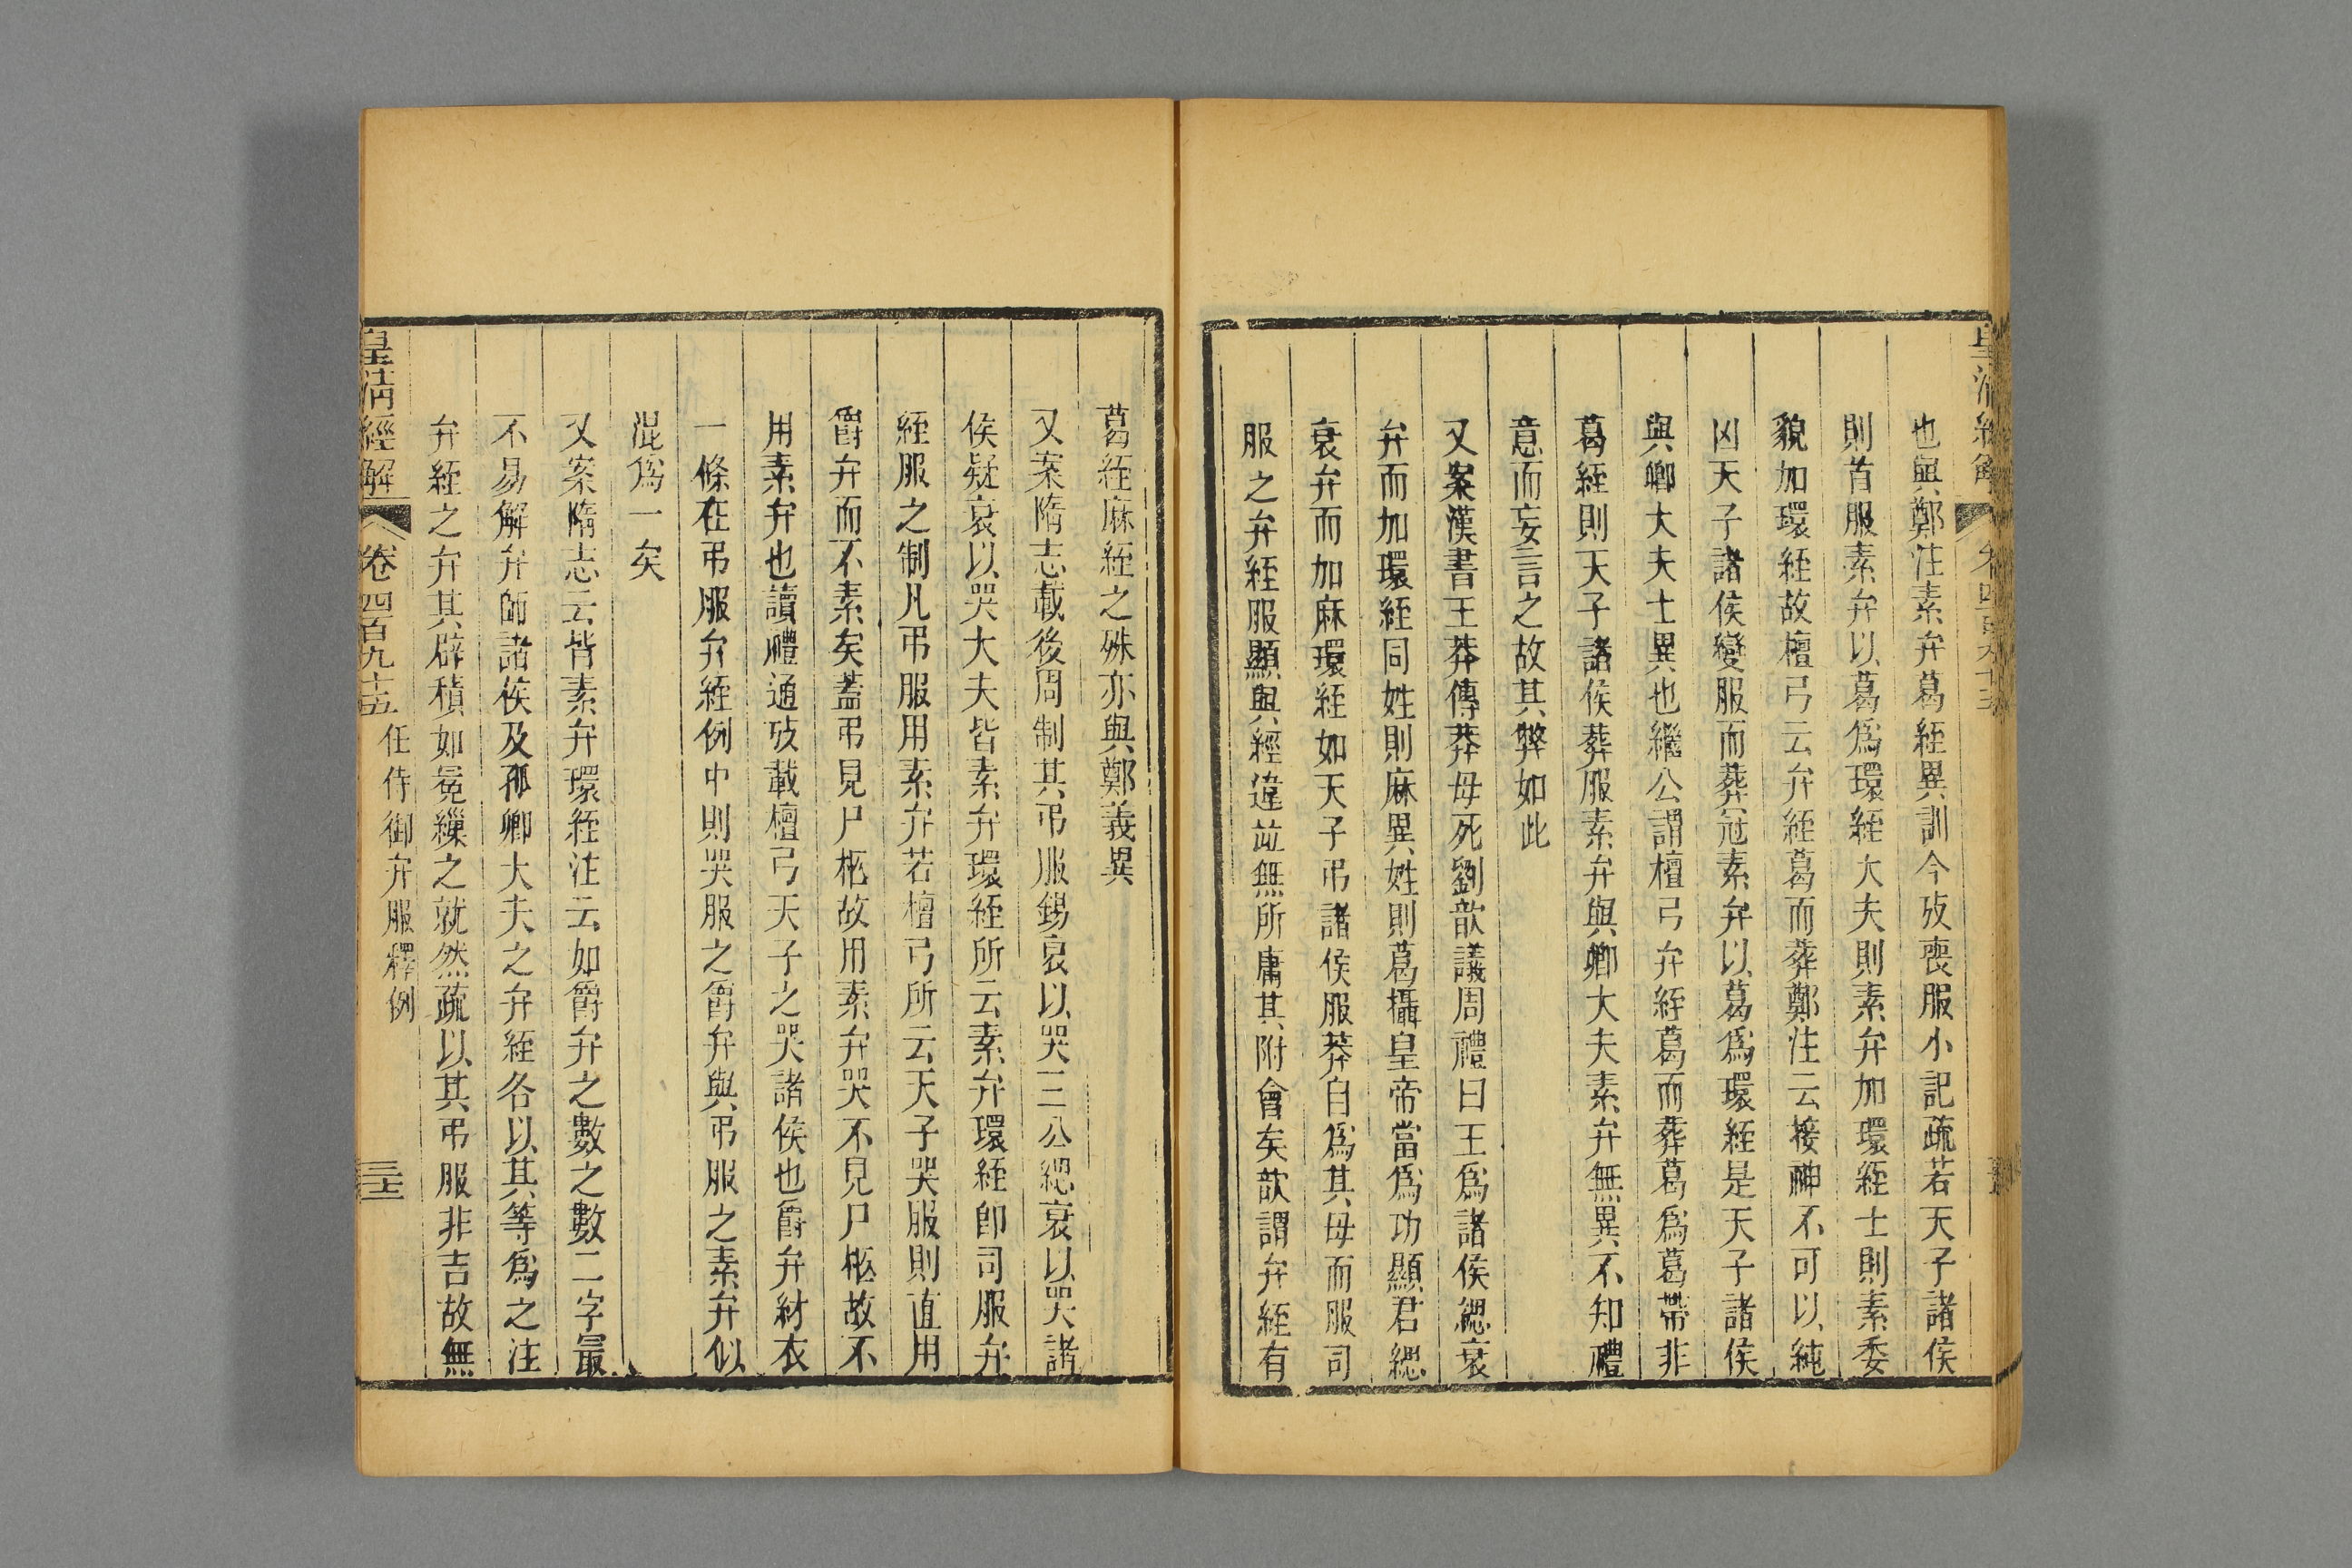 也與鄭注素弁葛絰異訓今攷喪服小記疏若天子諸侯
則首服素弁以葛爲環絰大夫則素弁加環絰士則素委
貌加環絰故檀弓云弁絰葛而葬鄭注云接神不可以純
凶天子諸侯變服而葬冠素弁以葛爲環絰是天子諸侯
與卿大夫士異也繼公謂檀弓弁絰葛而葬葛爲葛帶非
葛絰則天子諸侯葬服素弁與卿大夫素弁無異不知禮
意而妄言之故其弊如此
又案漢書王莽傳莽母死劉歆議周禮曰王爲諸侯緦衰
弁而加環絰同姓則麻異姓則葛攝皇帝當爲功顯君緦
衰弁而加麻環絰如天子弔諸侯服莽自爲其母而服司
服之弁絰服顯與經違竝無所庸其附會矣歆謂弁絰有
葛絰麻絰之殊亦與鄭義異
又案隋志載後周制其弔服錫衰以哭三公緦衰以哭諸
侯疑衰以哭大夫皆素弁環絰所云素弁環絰卽司服弁
絰服之制凡弔服用素弁若檀弓所云天子哭服則直用
爵弁而不素矣蓋弔見尸柩故用素弁哭不見尸柩故不
用素弁也讀禮通攷載檀弓天子之哭諸侯也爵弁紂衣
一條在弔服弁絰例中則哭服之爵弁與弔服之素弁似
混爲一矣
又案隋志云皆素弁環絰注云如爵弁之數之數二字最
不易解弁師諸侯及孤卿大夫之弁絰各以其等爲之注
弁絰之弁其辟積如冕繅之就然疏以其弔服非吉故無
皇清經解
卷四百九十五
任侍御弁服釋例